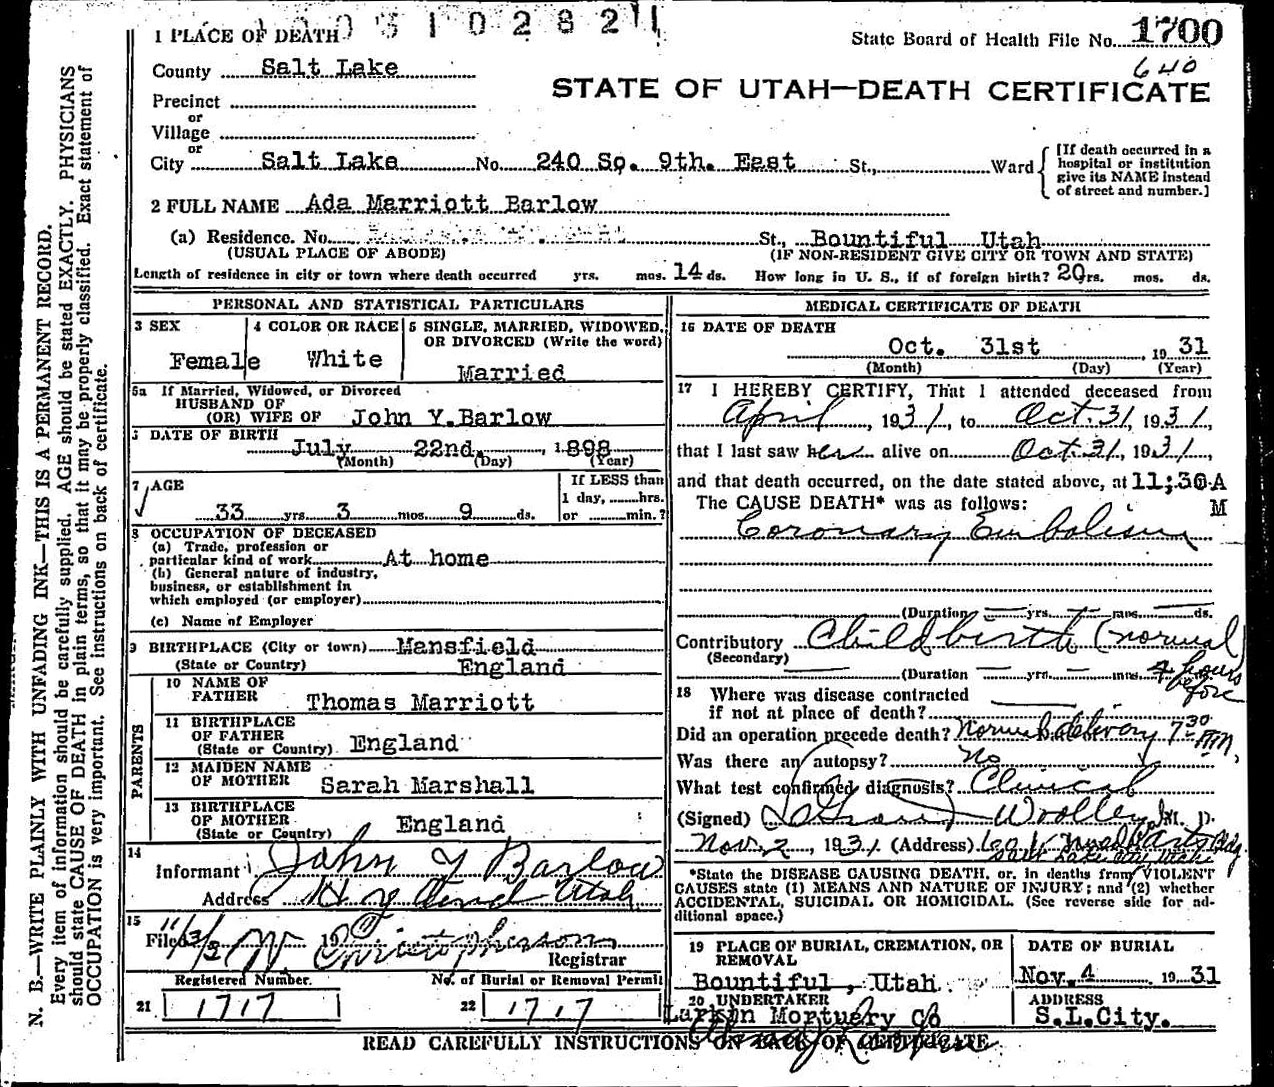 1 PLACE OF DEATH 0 5 1 0 2 8 2
State Board of Health File No. 1700
640
County Salt Lake
STATE OF UTAH—DEATH CERTIFICATE
Precinct
or
Village
or
City Salt Lake No. 240 So. 9th. East St., Ward
[If death occurred in a
hospital or institution
give its NAME instead
of street and number.]
2 FULL NAME Ada Marriott Barlow
(a) Residence. No. St., Bountiful Utah
(USUAL PLACE OF ABODE) (IF NON-RESIDENT GIVE CITY OR TOWN AND STATE)
Length of residence in city or town where death occurred yrs. mos. 14 ds. How long in U. S., if of foreign birth? 20 yrs. mos. ds.
PERSONAL AND STATISTICAL PARTICULARS
3 SEX 4 COLOR OR RACE 5 SINGLE, MARRIED, WIDOWED,
OR DIVORCED (Write the word)
Female White Married
5a If Married, Widowed, or Divorced
HUSBAND OF
(OR) WIFE OF John Y.Barlow
DATE OF BIRTH
July 22nd. , 1898
(Month) (Day) (Year)
7 AGE If LESS than
1 day, hrs.
33 yrs. 3 mos. 9 ds. or min.?
8 OCCUPATION OF DECEASED
(a) Trade, profession or
particular kind of work At home
(b) General nature of industry,
business, or establishment in
which employed (or employer)
(c) Name of Employer
9 BIRTHPLACE (City or town) Mansfield
(State or Country) England
PARENTS
10 NAME OF
FATHER Thomas Marriott
11 BIRTHPLACE
OF FATHER
(State or Country) England
12 MAIDEN NAME
OF MOTHER Sarah Marshall
13 BIRTHPLACE
OF MOTHER
(State or Country) England
14
Informant John Y Barlow
Address Utah
15
Filed 11/3/ 19 Christopherson
Registrar
Registered Number. No. of Burial or Removal Permit
21 1717 22 1717
MEDICAL CERTIFICATE OF DEATH
16 DATE OF DEATH
Oct. 31st , 19 31
(Month) (Day) (Year)
17 I HEREBY CERTIFY, That I attended deceased from
April , 1931, to Oct. 31, 1931,
that I last saw her alive on Oct. 31, 1931,
and that death occurred, on the date stated above, at 11;30 A
The CAUSE DEATH* was as follows: M
Coronary Embolism
(Duration yrs. mos. ds.
Contributory Childbirth (normal
(Secondary) 4 hours
(Duration yrs. mos. before
18 Where was disease contracted
if not at place of death?
Did an operation precede death? Normal delivery 7:30 AM.
Was there an autopsy? No
What test confirmed diagnosis? Clinical
(Signed) Woolley, M. D.
Nov. 2 , 1931 (Address) Arts Bldg.
Salt Lake City, Utah
*State the DISEASE CAUSING DEATH, or, in deaths from VIOLENT
CAUSES state (1) MEANS AND NATURE OF INJURY; and (2) whether
ACCIDENTAL, SUICIDAL OR HOMICIDAL. (See reverse side for ad-
ditional space.)
19 PLACE OF BURIAL, CREMATION, OR
REMOVAL
Bountiful , Utah.
DATE OF BURIAL
Nov. 4 19 31
20 UNDERTAKER
Larkin Mortuery Co
ADDRESS
S.L.City.
READ CAREFULLY INSTRUCTIONS ON BACK OF CERTIFICATE
N. B.—WRITE PLAINLY WITH UNFADING INK—THIS IS A PERMANENT RECORD.
Every item of information should be carefully supplied. AGE should be stated EXACTLY. PHYSICIANS
should state CAUSE OF DEATH in plain terms, so that it may be properly classified. Exact statement of
OCCUPATION is very important. See instructions on back of certificate.